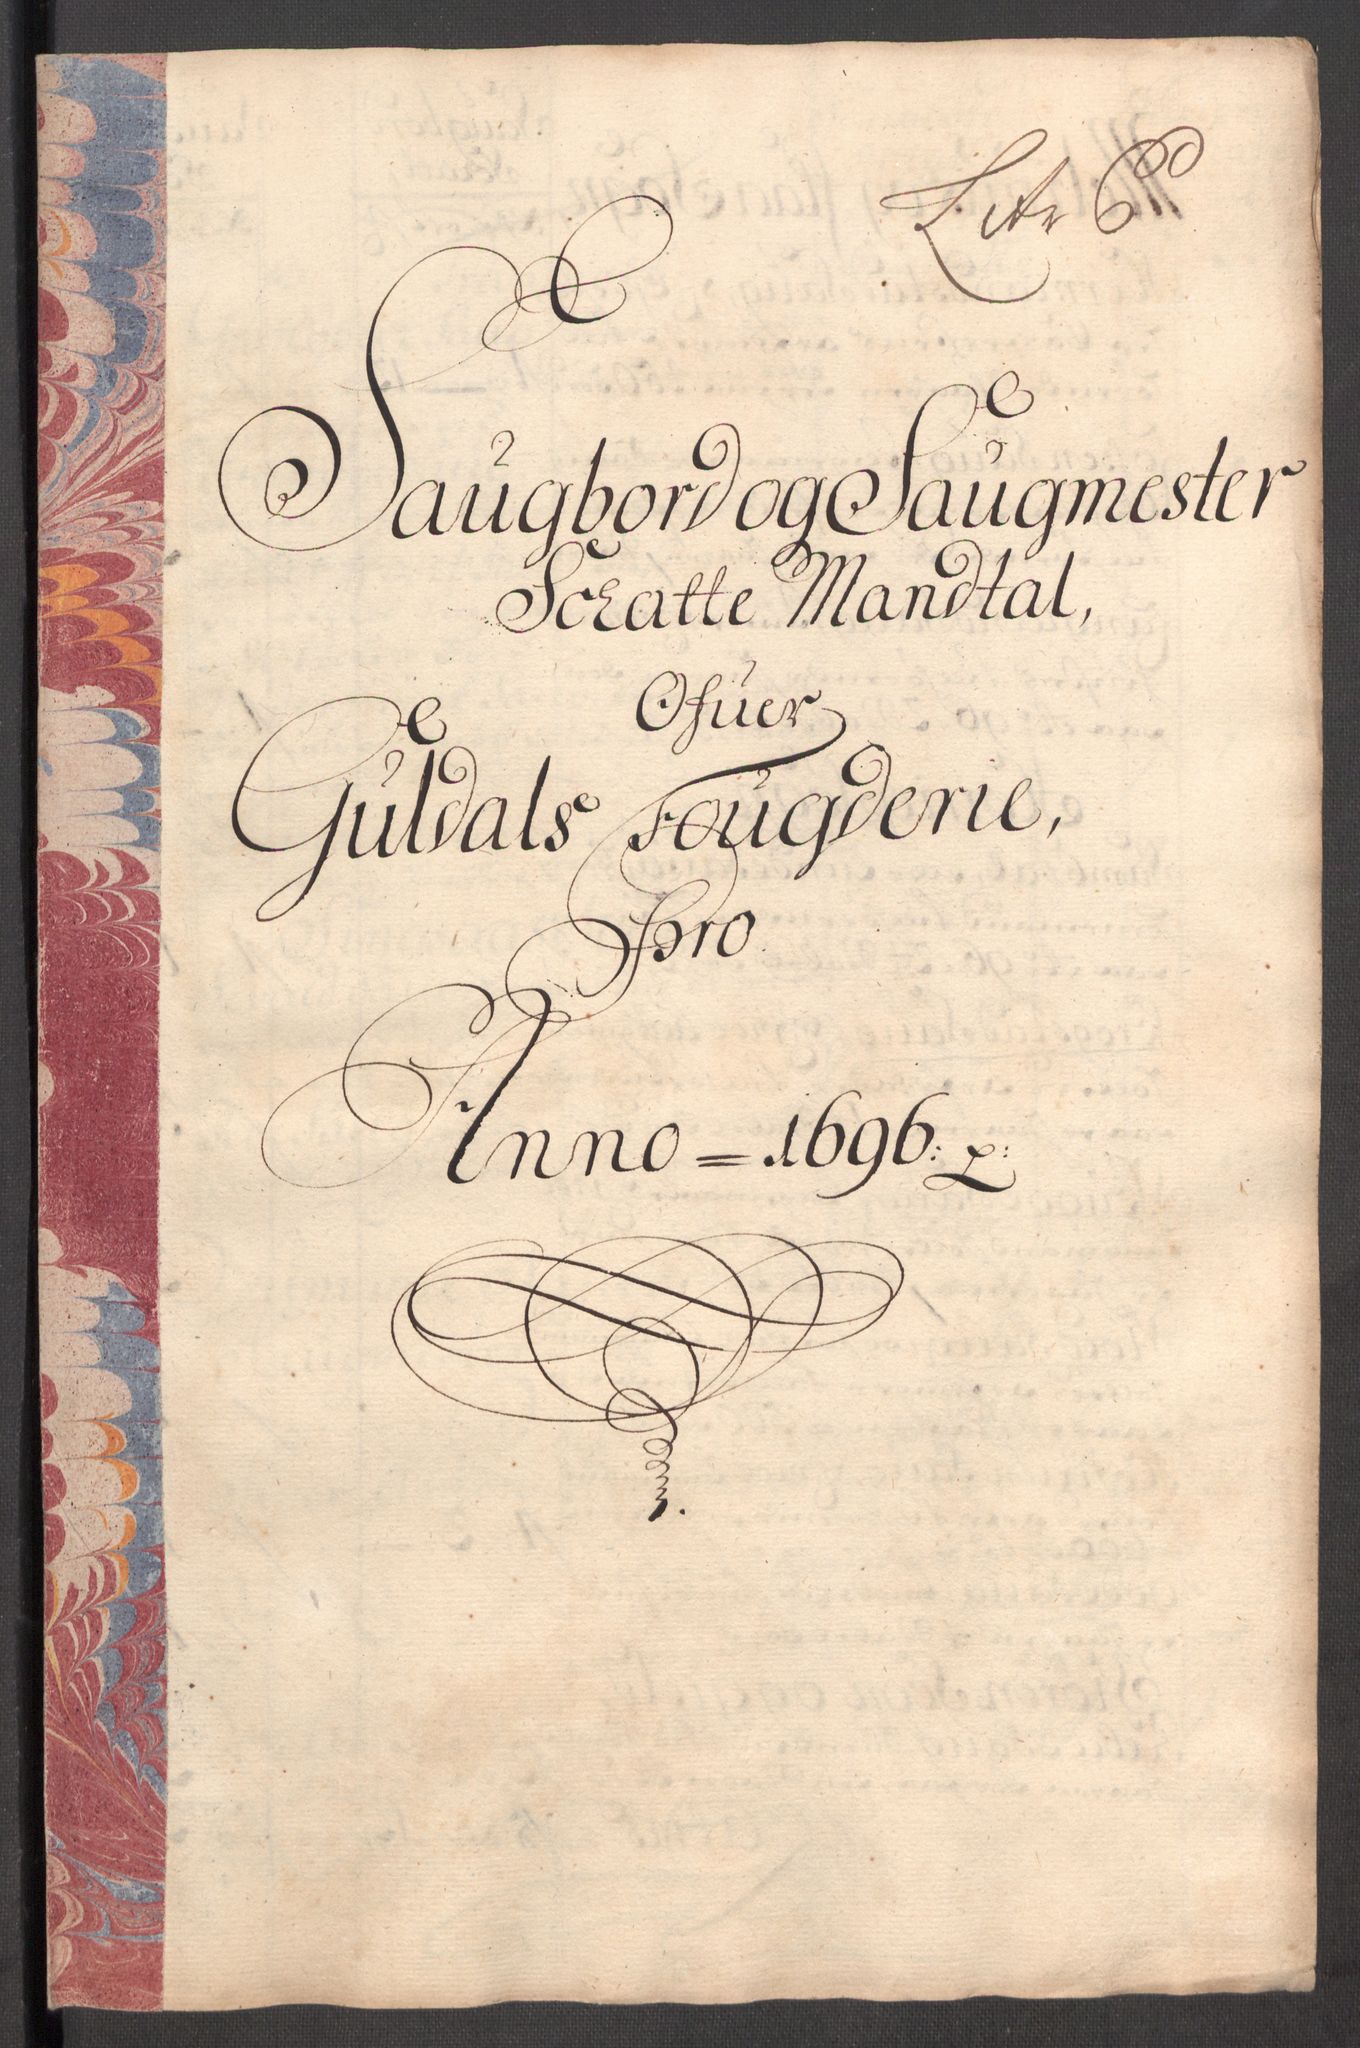 Litr
Saugbord og Saugmester
Schatte Mandtal,
Ofuer
Guldals Fougderie,
Pro
Anno = 1696: